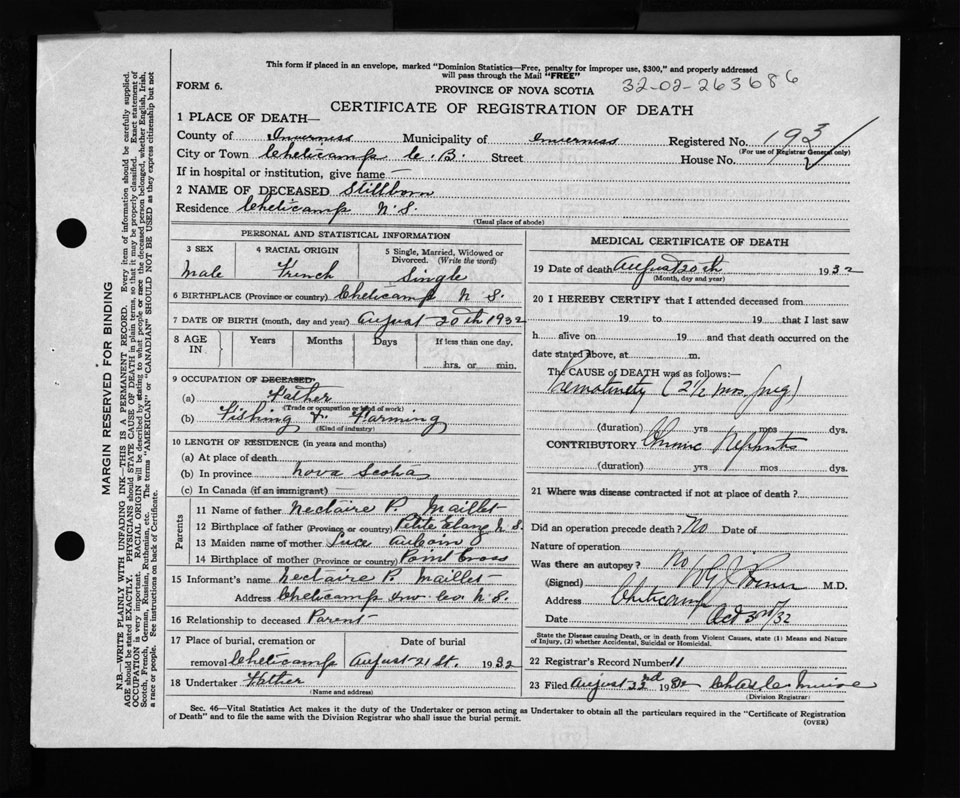 This form if placed in an envelope, marked "Dominion Statistics—Free, penalty for improper use, $300," and properly addressed
will pass through the Mail "FREE"
FORM 6.
PROVINCE OF NOVA SCOTIA
32-02-263686
CERTIFICATE OF REGISTRATION OF DEATH
1 PLACE OF DEATH—
County of Inverness Municipality of Inverness Registered No. 193
(For use of Registrar General only)
City or Town Cheticamp C. B. Street House No.
If in hospital or institution, give name —
2 NAME OF DECEASED Stillborn
Residence Cheticamp N. S.
(Usual place of abode)
PERSONAL AND STATISTICAL INFORMATION
3 SEX
Male
4 RACIAL ORIGIN
French
5 Single, Married, Widowed or
Divorced. (Write the word)
Single
6 BIRTHPLACE (Province or country) Cheticamp N. S.
7 DATE OF BIRTH (month, day and year) August 20th 1932
8 AGE
IN
Years Months Days If less than one day,
hrs. or min.
9 OCCUPATION OF DECEASED
(a) Father
(Trade or occupation or kind of work)
(b) Fishing & Farming
(Kind of industry)
10 LENGTH OF RESIDENCE (in years and months)
(a) At place of death
(b) In province Nova Scotia
(c) In Canada (if an immigrant) —
Parents
11 Name of father Nectaire P. Maillet
12 Birthplace of father (Province or country) Petite Etang N. S.
13 Maiden name of mother Luce Aucoin
14 Birthplace of mother (Province or country) Point Cross
15 Informant's name Nectaire P. Maillet
Address Cheticamp Inv. Co. N. S.
16 Relationship to deceased Parent
17 Place of burial, cremation or Date of burial
removal Cheticamp August 21st. 1932
18 Undertaker Father
(Name and address)
MEDICAL CERTIFICATE OF DEATH
19 Date of death August 20th 1932
(Month, day and year)
20 I HEREBY CERTIFY that I attended deceased from
19 to 19 that I last saw
h alive on 19 and that death occurred on the
date stated above, at m.
The CAUSE OF DEATH was as follows:—
(duration) yrs mos dys.
CONTRIBUTORY Chronic Nephritis
(duration) yrs mos dys.
21 Where was disease contracted if not at place of death?
Did an operation precede death? No Date of
Nature of operation
Was there an autopsy? No
(Signed) M.D.
Address Cheticamp
Date Oct 3rd/32
State the Disease causing Death, or in death from Violent Causes, state (1) Means and Nature
of Injury, (2) whether Accidental, Suicidal or Homicidal.
22 Registrar's Record Number 11
23 Filed August
(Division Registrar)
Sec. 46—Vital Statistics Act makes it the duty of the Undertaker or person acting as Undertaker to obtain all the particulars required in the "Certificate of Registration
of Death" and to file the same with the Division Registrar who shall issue the burial permit.
(OVER)
MARGIN RESERVED FOR BINDING
N.B.—WRITE PLAINLY WITH UNFADING INK—THIS IS A PERMANENT RECORD. Every item of information should be carefully supplied.
AGE should be stated EXACTLY. PHYSICIANS should STATE CAUSE OF DEATH in plain terms, so that it may be properly classified. Exact statement of
OCCUPATION is very important. RACIAL ORIGIN will be described by stating to what people or race the deceased person belonged, whether English, Irish,
Scotch, French, German, Russian, Ruthenian, etc. The terms "AMERICAN" or "CANADIAN" SHOULD NOT BE USED as they express citizenship but not
a race or people. See instructions on back of Certificate.